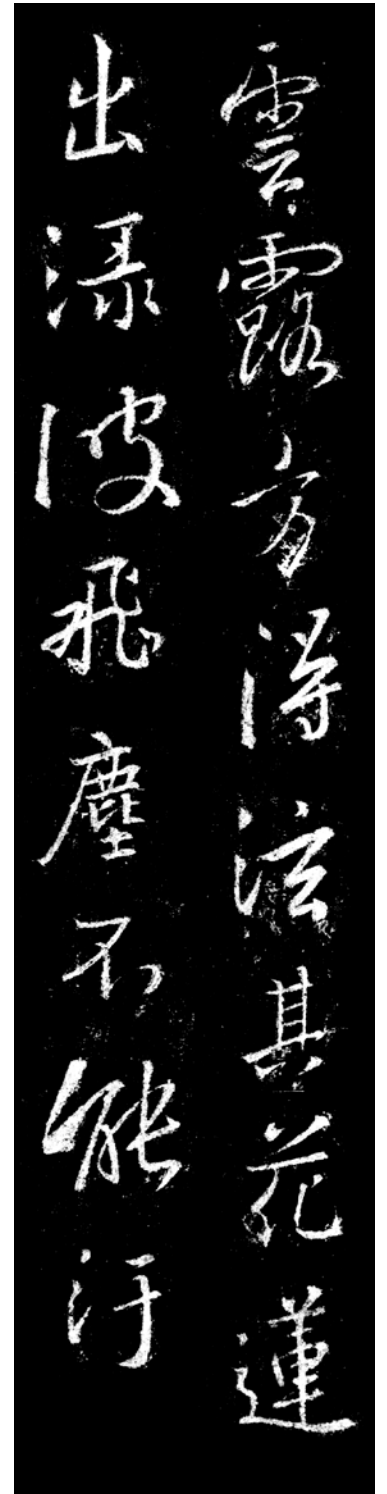 雲露方得泫其花蓮
出淥波飛塵不能汙